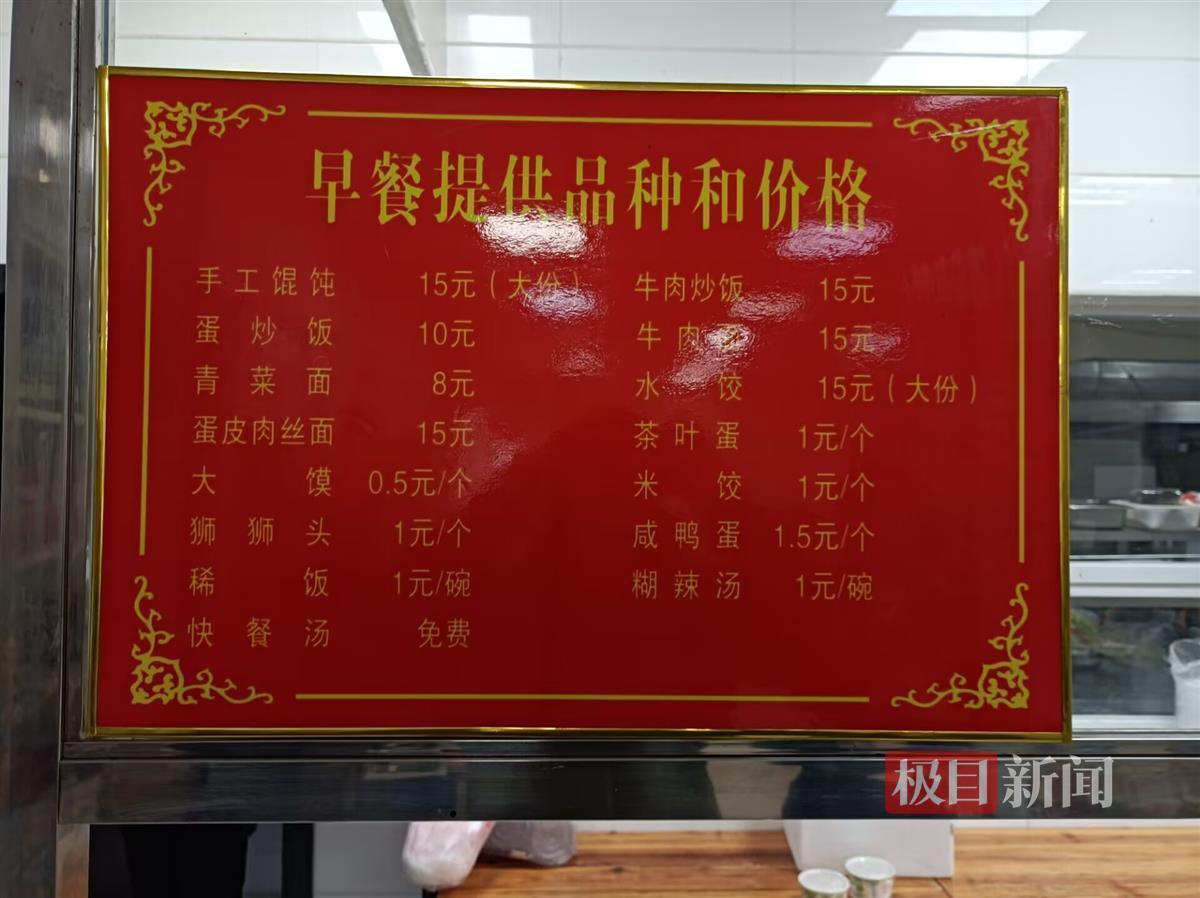 早餐提供品种和价格
手工馄饨 15元（大份）
蛋炒饭 10元
青菜面 8元
蛋皮肉丝面 15元
大馍 0.5元/个
狮狮头 1元/个
稀饭 1元/碗
快餐汤 免费
牛肉炒饭 15元
牛肉 15元
水饺 15元（大份）
茶叶蛋 1元/个
米饺 1元/个
咸鸭蛋 1.5元/个
糊辣汤 1元/碗
极目新闻